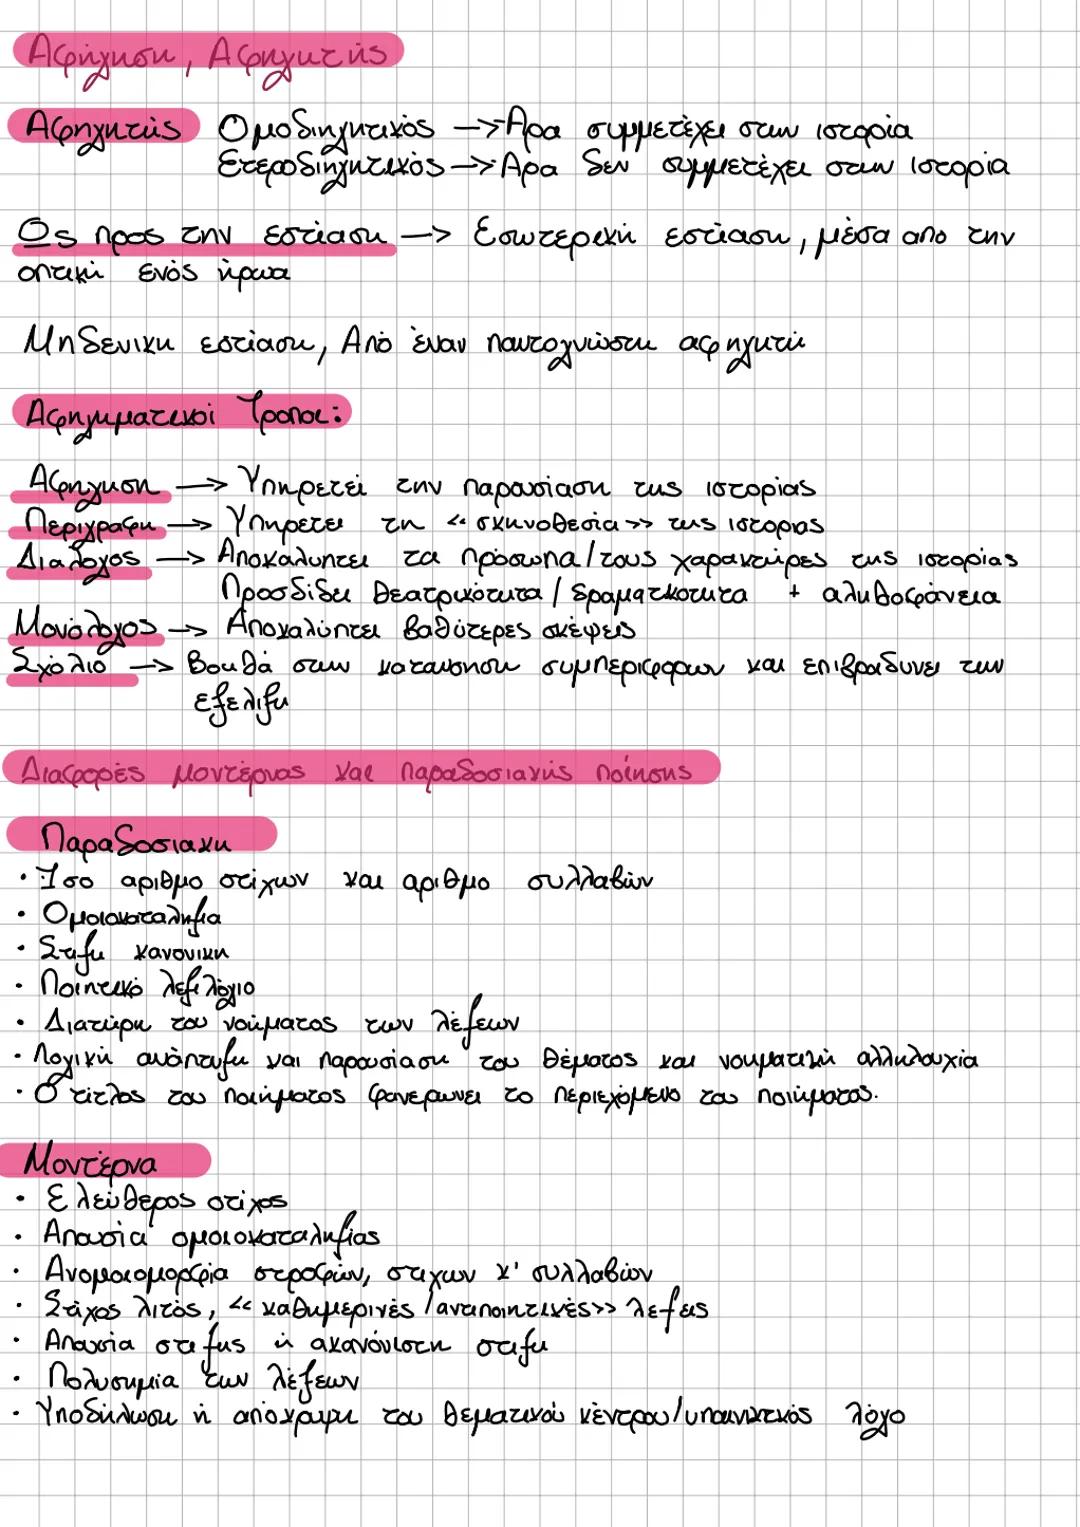 Αφήγηση, Αφηγητής
Αφηγητής Ομοδιηγητικός → Άρα συμμετέχει στην ιστορία
Ετεροδιηγητικός → Άρα δεν συμμετέχει στην ιστορία
Ως προς την εστίαση → Εσωτερική εστίαση, μέσα απο την
οπτική ενός ήρωα
Μηδενικη εστίαση, Από έναν παντογνώστη αφηγητή
Αφηγηματικοί Τροποι:
Αφήγηση → Υπηρετεί την παρουσίαση της ιστορίας
Περιγραφη → Υπηρετει τη << σκηνοθεσία >> της ιστοριας
Διαλογος → Αποκαλυπτει τα πρόσωπα / τους χαρακτήρες της ιστορίας
Προσδίδει θεατρικότητα / δραματικοτητα + αληθοφάνεια
Μονόλογος → Αποκαλύπτει βαθύτερες σκέψεις
Σχόλιο → Βοηθά στην κατανοηση συμπεριφορων και επιβραδυνει την
εξελιξη
Διαφορές μοντέρνας και παραδοσιακής ποίησης
Παραδοσιακη
• Ίσο αριθμο στίχων και αριθμο συλλαβών
• Ομοιοκαταληξία
• Στιξη κανονικη
• Ποιητικό λεξιλόγιο
• Διατήρη του νοήματος των λέξεων
• Λογική ανάπτυξη και παρουσίαση του θέματος και νοηματική αλληλουχία
• Ο τίτλος του ποιήματος φανερωνει το περιεχόμενο του ποιήματος.
Μοντέρνα
• Ελεύθερος στίχος
• Απουσία ομοιοκαταληξίας
• Ανομοιομορφία στροφών, στιχων κ' συλλαβών
• Στίχος λιτός, << καθημερινές / αντιποιητικές >> λεξεις
• Απουσία στιξης ή ακανόνιστη στιξη
• Πολυσημία των λέξεων
• Υποδήλωση ή απόκρυψη του θεματικού κέντρου/υπαινικτικός λόγο